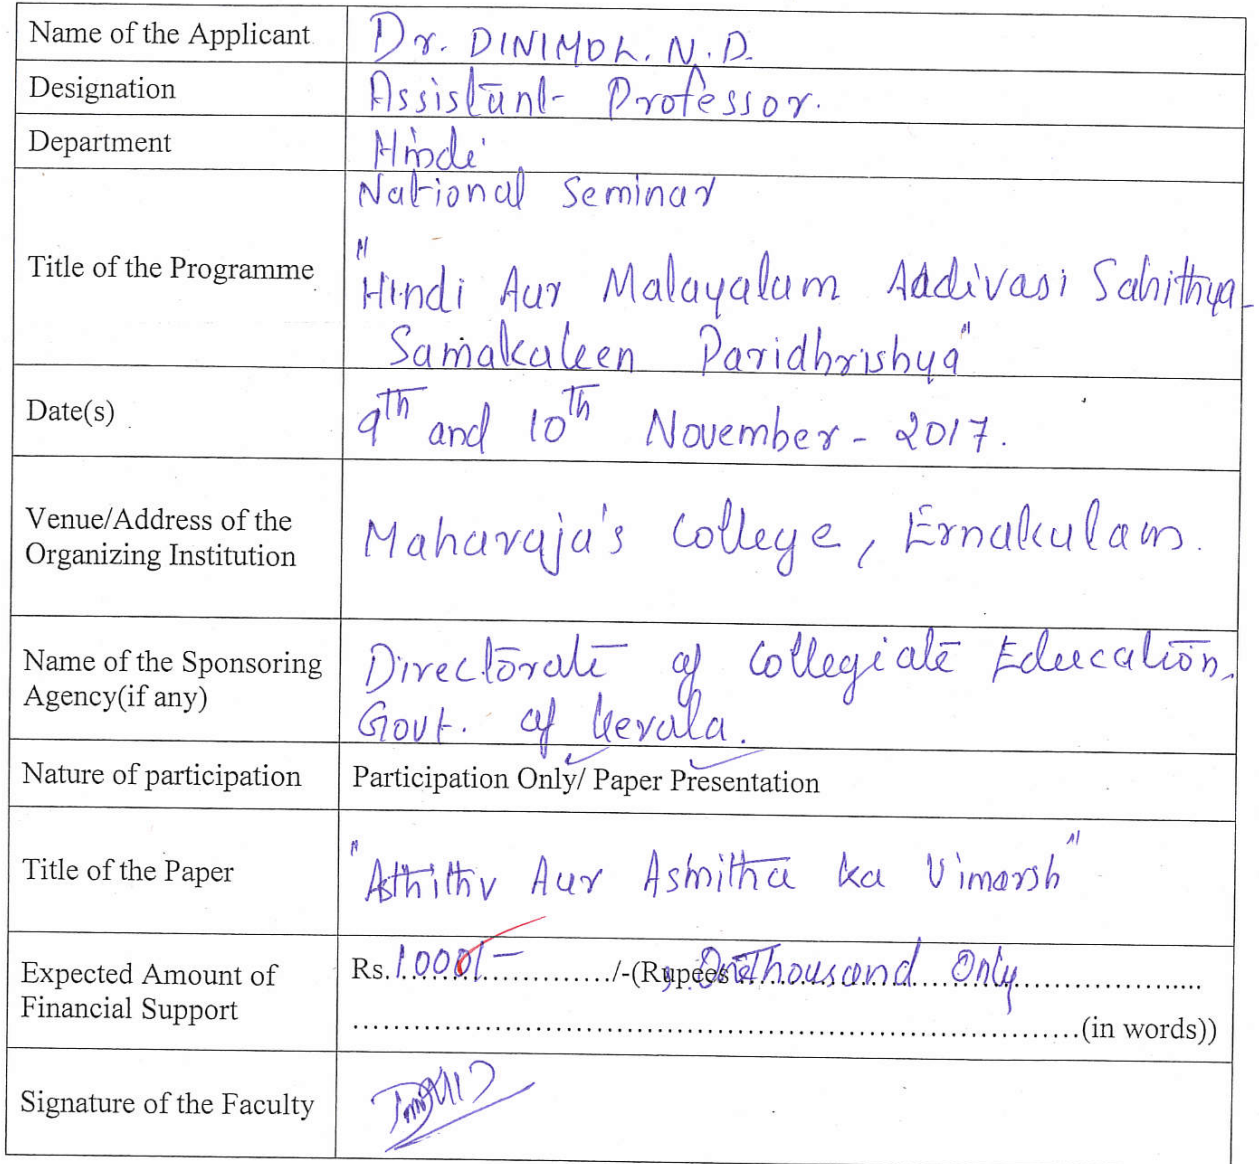 Name of the Applicant Dr. DINIMOL. N. D.
Designation Assistant Professor.
Department Hindi
National Seminar
Title of the Programme "Hindi Aur Malayalam Aadivasi Sahithya-
Samakaleen Paridhrishya"
Date(s) 9th and 10th November - 2017.
Venue/Address of the
Organizing Institution Maharaja's College, Ernakulam.
Name of the Sponsoring Directorate of Collegiate Education.
Agency(if any) Govt. of Kerala.
Nature of participation Participation Only/ Paper Presentation
Title of the Paper "Asthithv Aur Asmitha ka Vimarsh"
Expected Amount of Rs. 1000/- ................../-(Rupees One Thousand Only .....................
Financial Support ........................................................................(in words))
Signature of the Faculty